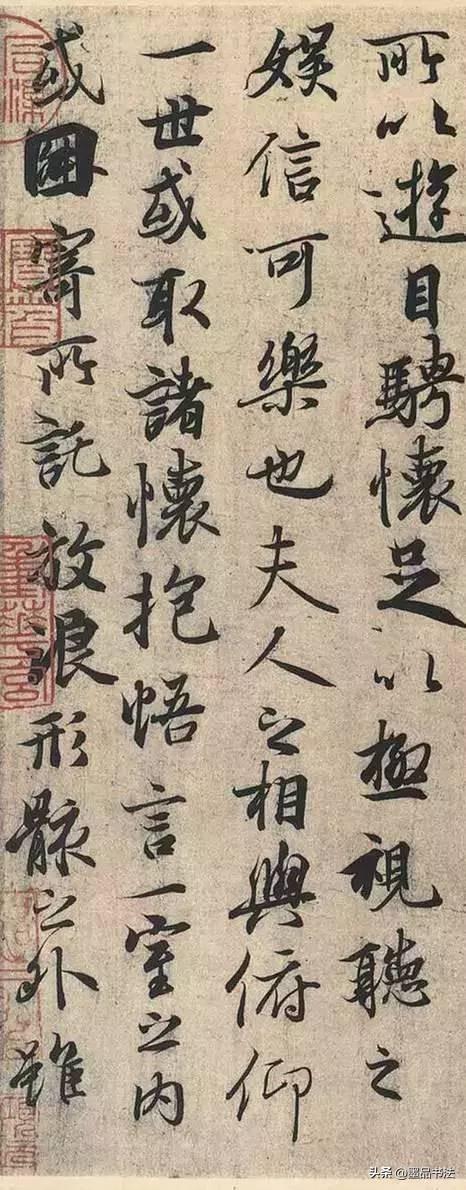 所以遊目騁懷足以極視聽之
娛信可樂也夫人之相與俯仰
一世或取諸懷抱悟言一室之內
或因寄所託放浪形骸之外雖
头条 @墨品书法